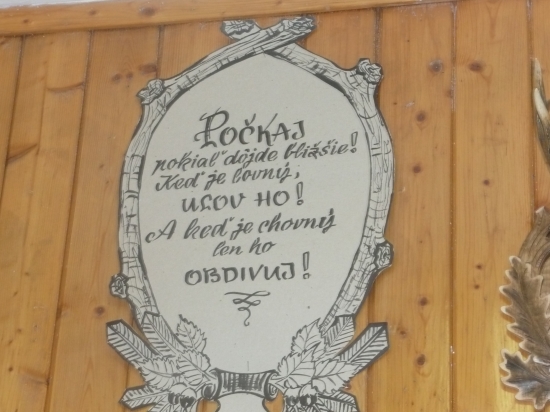 POČKAJ
pokiaľ dôjde bližšie!
Keď je lovný,
ULOV HO!
A keď je chovný
len ho
OBDIVUJ!